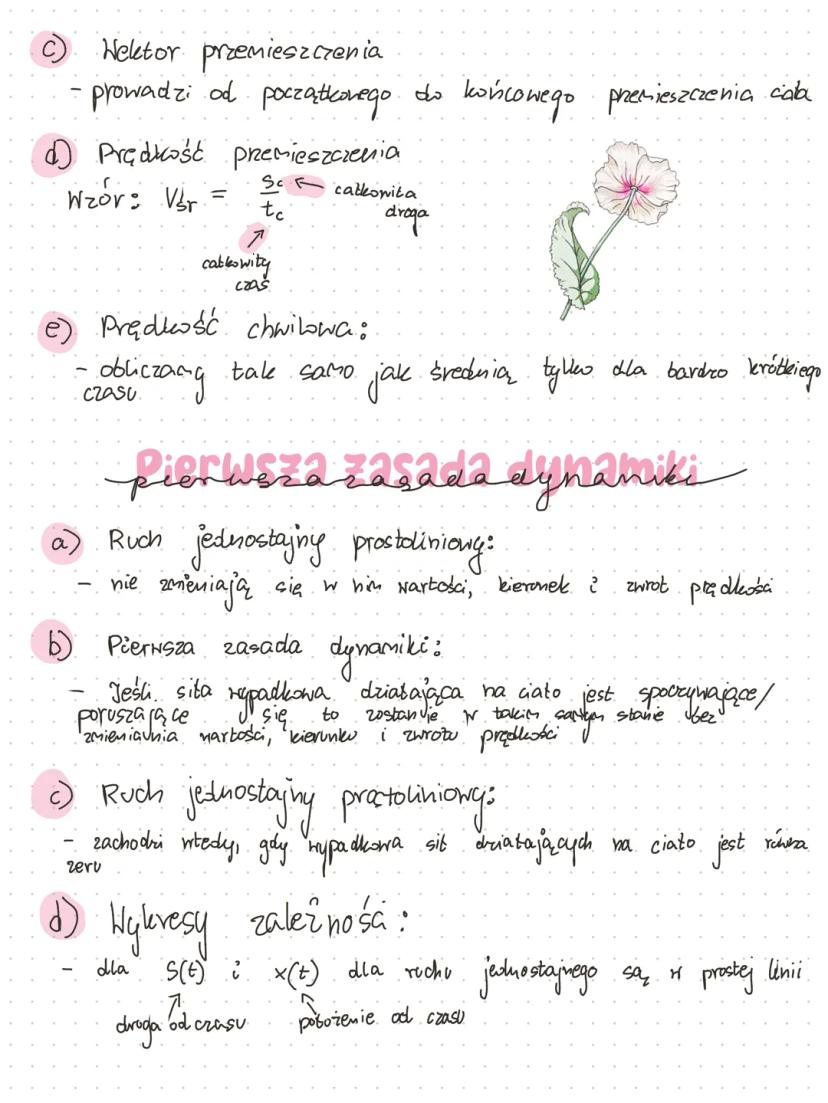 c) Wektor przemieszczenia
- prowadzi od początkowego do końcowego przemieszczenia ciała
d) Prędkość przemieszczenia
Wzór: Vśr = Sc / tc ← całkowita droga
↗ całkowity czas
e) Prędkość chwilowa:
- obliczamy tak samo jak średnią tylko dla bardzo krótkiego
czasu
Pierwsza zasada dynamiki
pierwsza zasada dynamiki
a) Ruch jednostajny prostoliniowy:
- nie zmieniają się w nim wartości, kierunek i zwrot prędkości
b) Pierwsza zasada dynamiki:
- Jeśli siła wypadkowa działająca na ciało jest spoczywające/
poruszające się to zostanie w takim samym stanie bez
zmieniania wartości, kierunku i zwrotu prędkości
c) Ruch jednostajny prostoliniowy:
- zachodzi wtedy, gdy wypadkowa sił działających na ciało jest równa
zeru
d) Wykresy zależności:
- dla S(t) i x(t) dla ruchu jednostajnego są w prostej linii
droga od czasu położenie od czasu